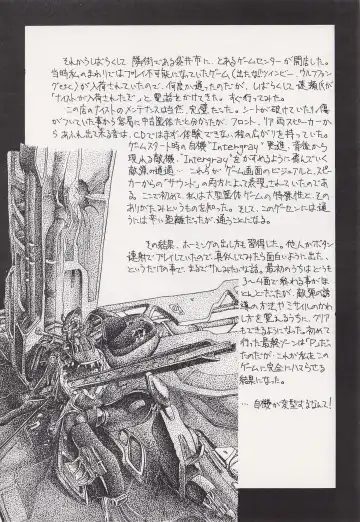 それからしばらくして 隣街である袋井市に、とあるゲームセンターが開店した。
当時私のまわりではプレイ不可能になっていたゲーム(出たな!!ツインビー、ウルフファング
etc.)が入荷されていたので、何度か通ったのだが、しばらくして
「ナイストが入荷されたで」と電話をかけてきた。すぐ行ってみた。
この店のナイストのメンテナンスは当然、完璧だった。シートが破けていたり傷が
ついていた事から容易に中古筐体だと分かったが、フロント、リア両スピーカーから
あふれ出て来る音は、CDではまず体験できない程の広がりを持っていた。
ゲームスタート時の自機"Intergray"発進、背後から
現れる敵機、"Intergray"をかすめるように飛んでいく
敵黒の通過… これらがゲーム画面のビジュアルとスピー
カーからの"サウンド"の両方によって表現されていたのであ
る。ここで初めて、私は大型筐体ゲームの特異性と、その
ありがたみというものを知った。そして、このゲーセンには、通う
には辛い距離だったが、通うことになる。
その結果、ホーミングの出し方を習得した。他人がボタン
連射でプレイしていたので、真似してみたら面白いように出た、
というだけの事で、まるでウソみたいな話。最初のうちはどうも
3〜4面で終わる事がほ
とんどだったが、敵黒の誘
導の方法やミサイルのかわ
し方を覚えるうちに、クリア
もできるようになった。初めて
行った最終ゾーンは「P」だっ
たのだが、これが私をこの
ゲームに完全にハマらせる
結果になった。
… 自機が変型するなんて!